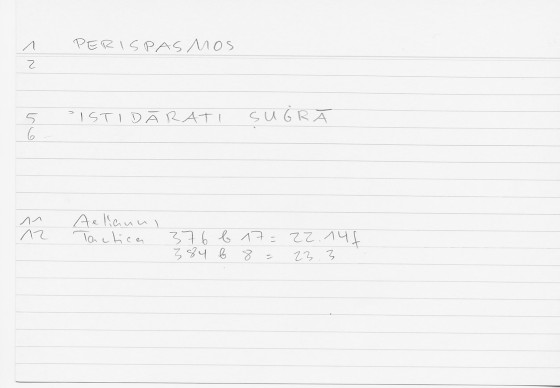 1 PERISPASMOS
2
5 ʾISTIDĀRATI ṢUĠRĀ
6
11 Aelianus
12 Tactica 376 b 17 = 22.14f
384 b 8 = 23 3